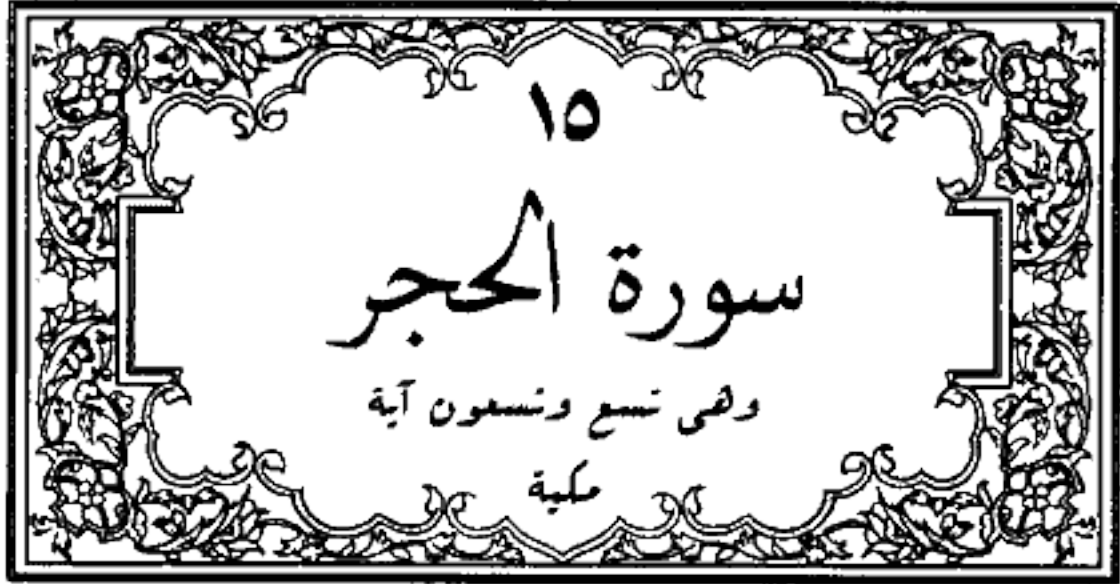 ١٥
سورة الحجر
وهى تسع وتسعون آية
مكية